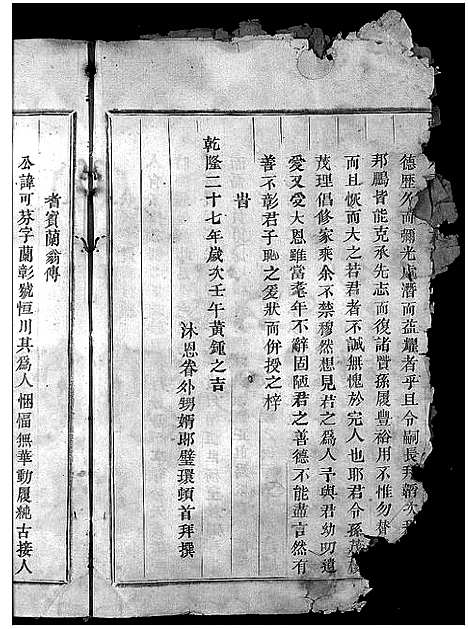 德歷久而彌光處潛而益耀者乎且令嗣長拜紹次
邦鵬皆能克承先志而復諸賢孫履豐裕用不惟勿替
而且恢而大之若君者不誠無愧於完人也耶君令孫
茂理倡修家乘余不禁穆然想見君之為人予與君幼叨遺
愛又受大恩雖當耄年不辭固陋君之善德不能盡言然有
善不彰君子恥之爰狀而併授之梓
旹
乾隆二十七年歲次壬午黃鍾之吉
沐恩眷外甥婿耶璧環頓首拜撰
耆賓蘭翁傳
公諱可芬字蘭彰號恒川其為人悃愊無華動履純古接人